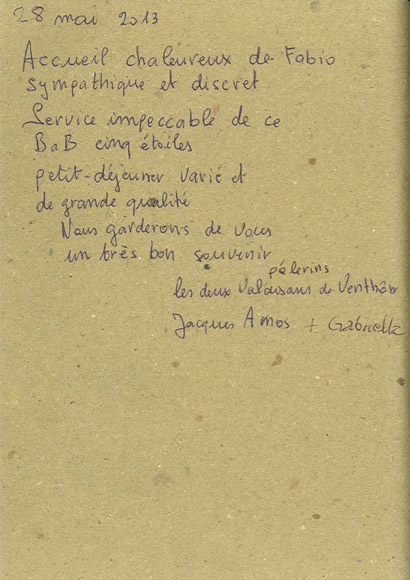 28 mai 2013
Accueil chaleureux de Fabio
sympathique et discret
Service impeccable de ce
BaB cinq étoiles
petit-déjeuner varié et
de grande qualité
Nous garderons de vous
un très bon souvenir
pélerins
les deux Valaisans de Venthône
Jacques Amos + Gabrielle